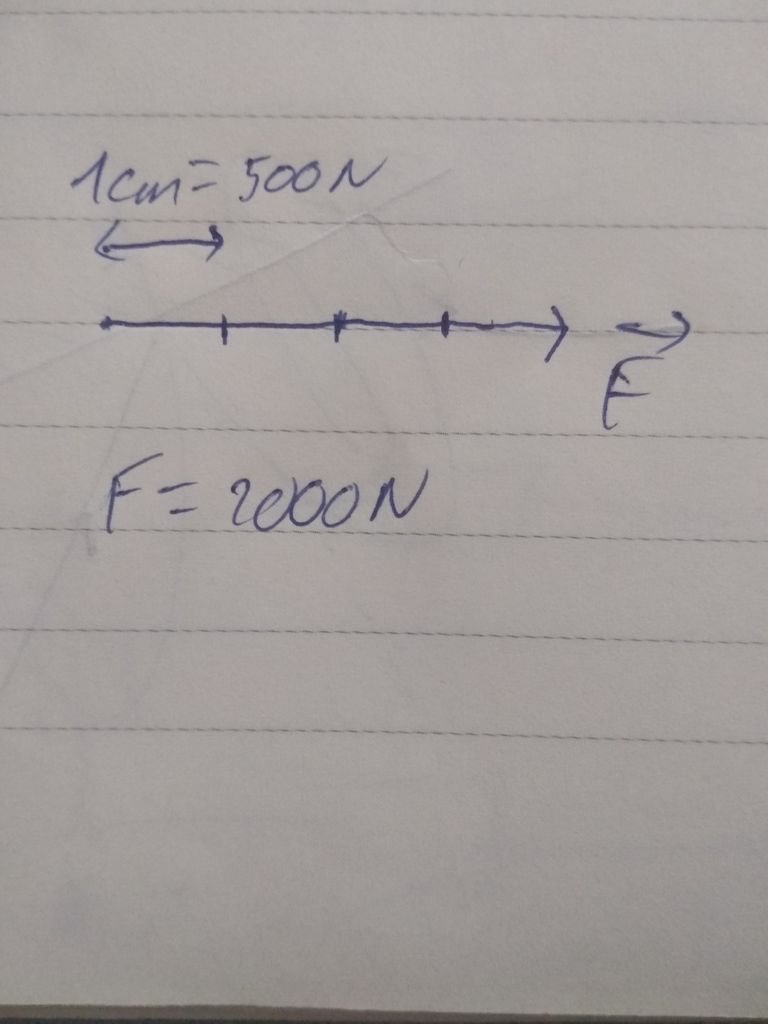 1cm = 500N
F
F = 2000N